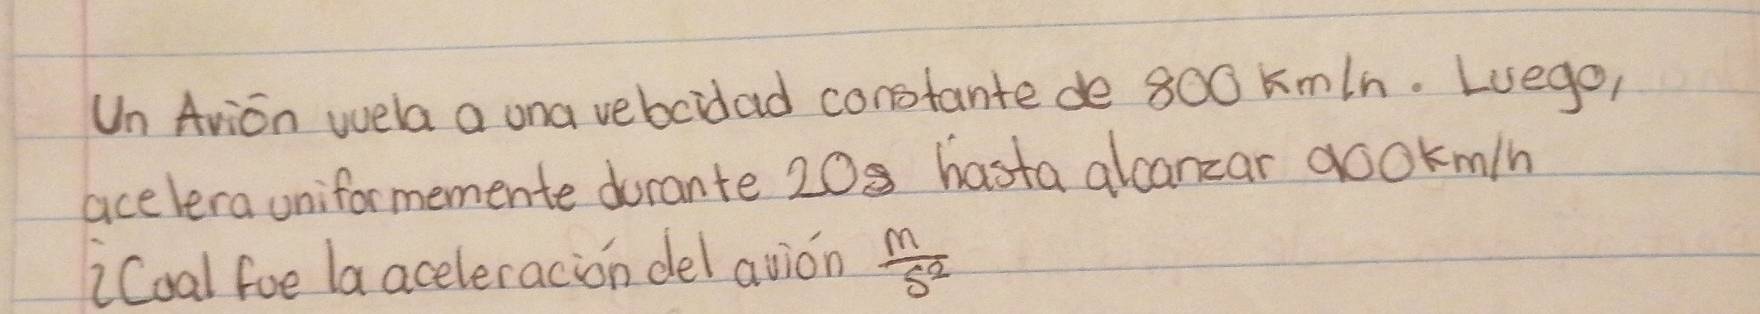 Un Avión vuela a una velocidad constante de 800 km/h. Luego,
acelera uniformemente durante 20s hasta alcanzar 900km/h
¿Cual fue la aceleración del avión m/s²